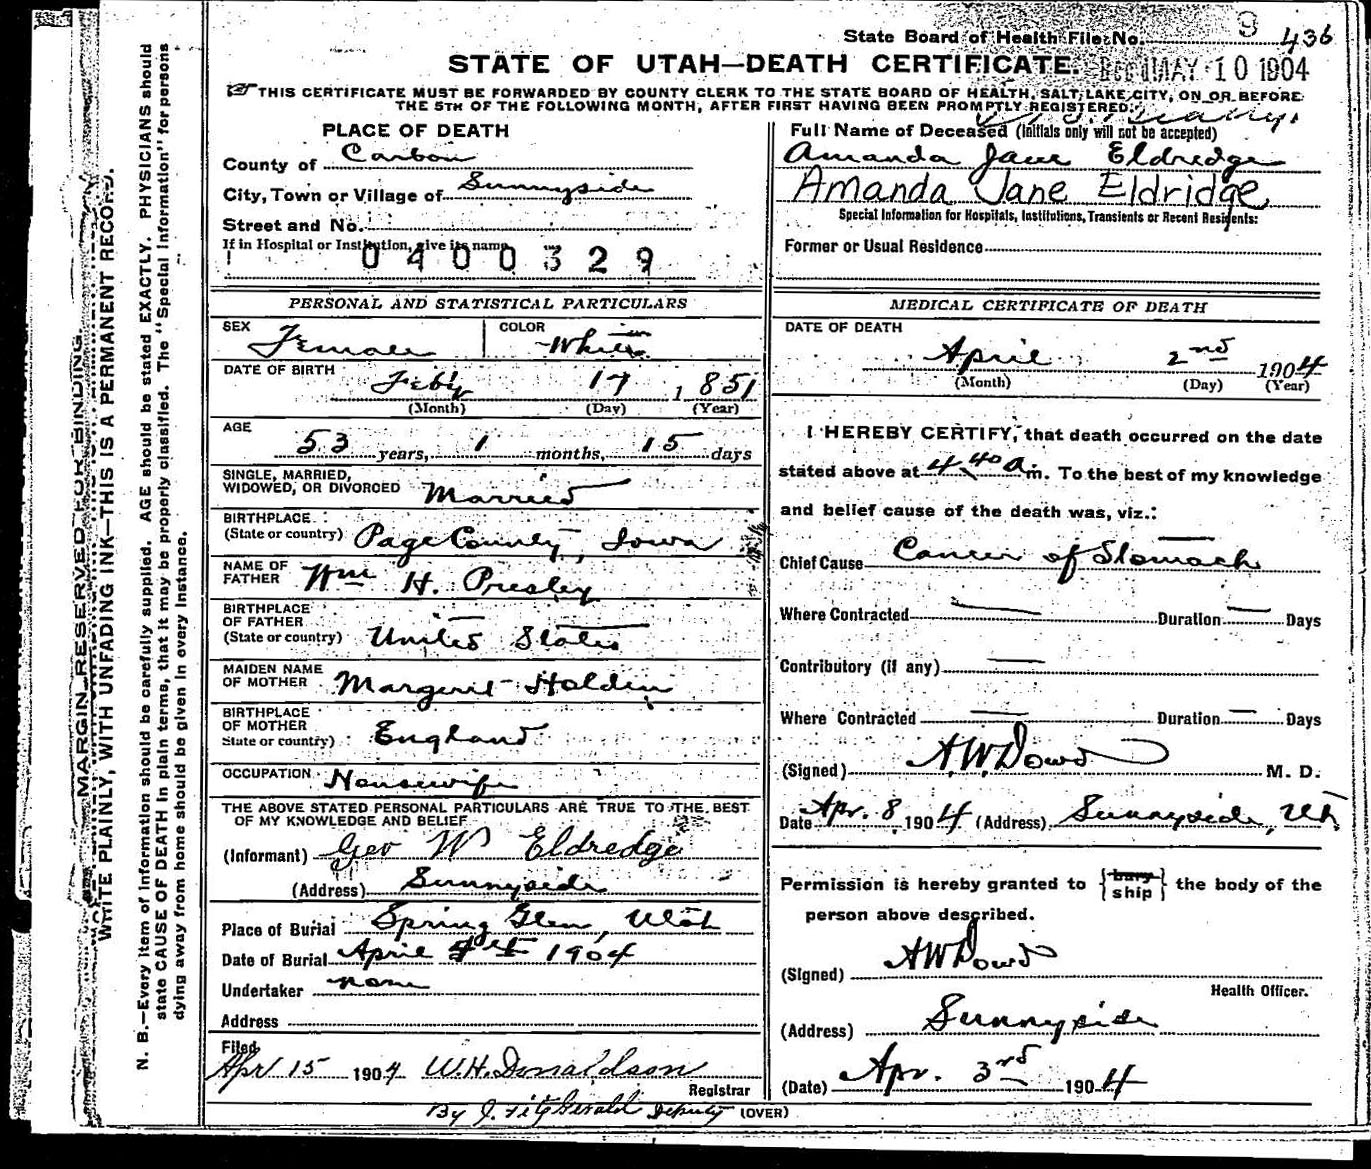 State Board of Health File No. 9 436
STATE OF UTAH—DEATH CERTIFICATE.
Rec'd MAY 10 1904
THIS CERTIFICATE MUST BE FORWARDED BY COUNTY CLERK TO THE STATE BOARD OF HEALTH, SALT LAKE CITY, ON OR BEFORE
THE 5TH OF THE FOLLOWING MONTH, AFTER FIRST HAVING BEEN PROMPTLY REGISTERED.
MARGIN RESERVED FOR BINDING.
WRITE PLAINLY, WITH UNFADING INK—THIS IS A PERMANENT RECORD.
N. B.—Every item of information should be carefully supplied. AGE should be stated EXACTLY. PHYSICIANS should
state CAUSE OF DEATH in plain terms, that it may be properly classified. The "Special Information" for persons
dying away from home should be given in every instance.
PLACE OF DEATH
County of Carbon
City, Town or Village of Sunnyside
Street and No.
If in Hospital or Institution, give its name
0400329
Full Name of Deceased (Initials only will not be accepted)
Amanda Jane Eldredge
Amanda Jane Eldridge
Special Information for Hospitals, Institutions, Transients or Recent Residents:
Former or Usual Residence
PERSONAL AND STATISTICAL PARTICULARS
SEX Female COLOR White
DATE OF BIRTH Feb'y 17 1851
(Month) (Day) (Year)
AGE
53 years, 1 months, 15 days
SINGLE, MARRIED,
WIDOWED, OR DIVORCED Married
BIRTHPLACE
(State or country) Page County, Iowa
NAME OF
FATHER Wm H. Presley
BIRTHPLACE
OF FATHER
(State or country) United States
MAIDEN NAME
OF MOTHER Margerit Holden
BIRTHPLACE
OF MOTHER
State or country) England
OCCUPATION Housewife
THE ABOVE STATED PERSONAL PARTICULARS ARE TRUE TO THE BEST
OF MY KNOWLEDGE AND BELIEF
(Informant) Geo W Eldredge
(Address) Sunnyside
Place of Burial Spring Glen, Utah
Date of Burial April 1904
Undertaker none
Address
Filed
Apr 15 1904 W.H. Donaldson
Registrar
By J. FitzGerald Deputy (OVER)
MEDICAL CERTIFICATE OF DEATH
DATE OF DEATH
April 2nd 1904
(Month) (Day) (Year)
I HEREBY CERTIFY, that death occurred on the date
stated above at 4 40 a m. To the best of my knowledge
and belief cause of the death was, viz.:
Chief Cause Cancer of Stomach
Where Contracted — Duration — Days
Contributory (if any) —
Where Contracted — Duration — Days
(Signed) A.W. Dowd M. D.
Date Apr. 8 1904 (Address) Sunnyside, Ut.
Permission is hereby granted to {bury ship} the body of the
person above described.
(Signed) AW Dowd
Health Officer.
(Address) Sunnyside
(Date) Apr. 3rd 1904